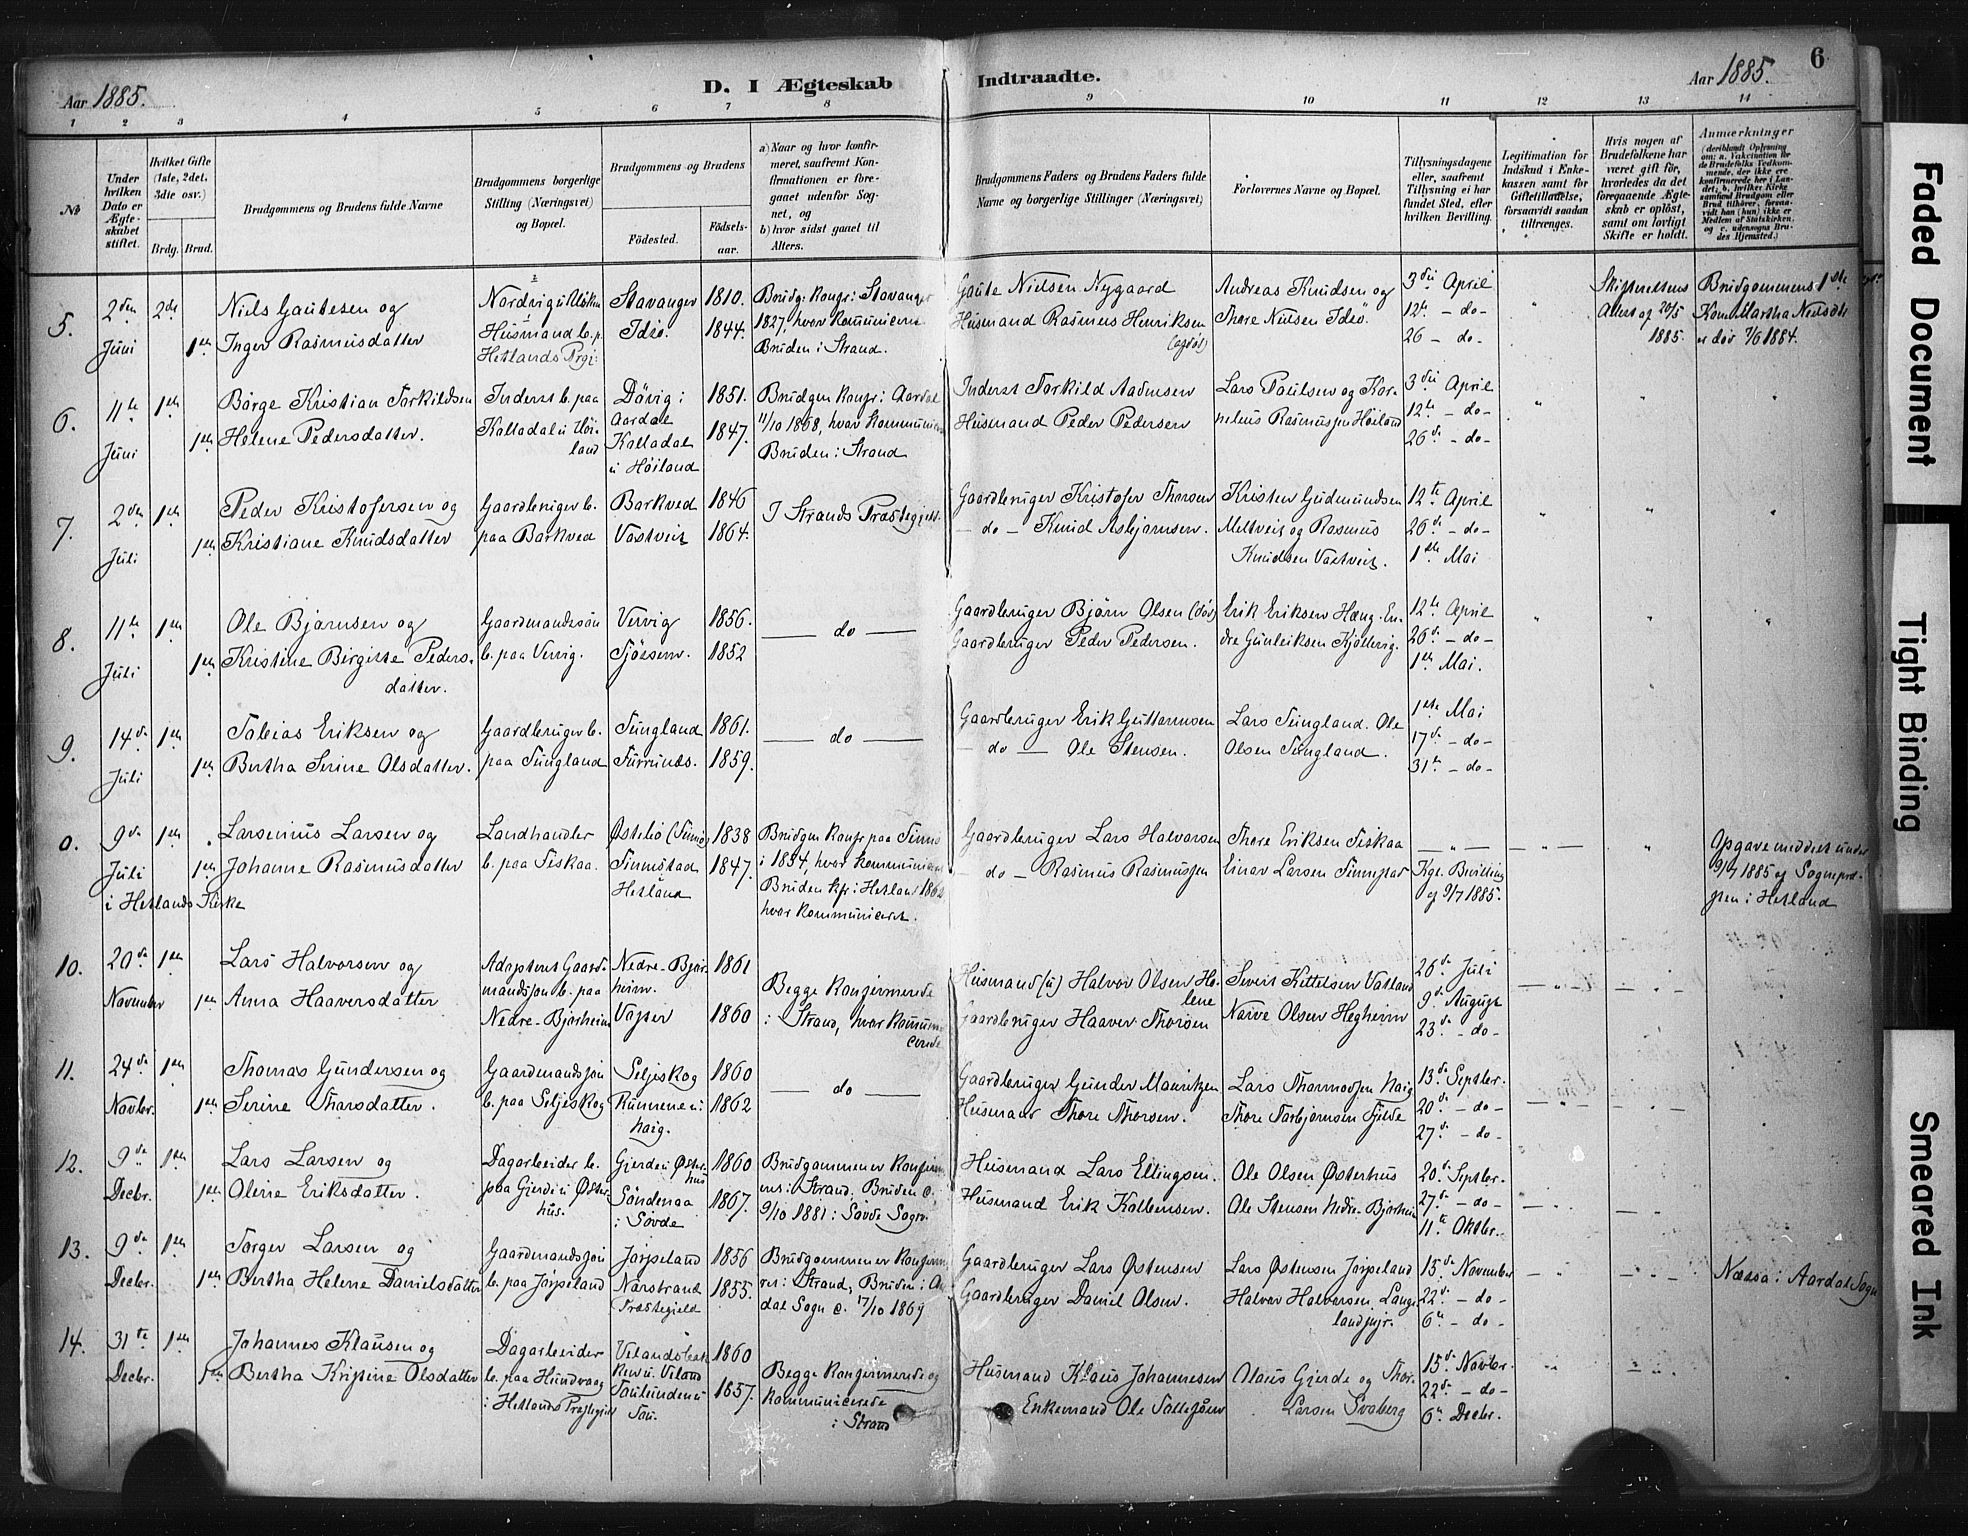 Aar 1885.
D. I Ægteskab Indtraadte.
Aar 1885.
6
1 2 3 4 5 6 7 8 9 10 11 12 13 14
No
Under hvilken Dato er Ægteskabet stiftet.
Hvilket Gifte (1ste, 2det, 3die osv.)
Brdg. Brud.
Brudgommens og Brudens fulde Navne
Brudgommens borgerlige Stilling (Næringsvei) og Bopæl.
Brudgommens og Brudens
Fødested.
Fødselsaar.
a) Naar og hvor konfirmeret, saafremt Konfirmationen er foregaaet udenfor Sognet, og
b) hvor sidst gaaet til Alters.
Brudgommens Faders og Brudens Faders fulde Navne og borgerlige Stillinger (Næringsvei)
Forlovernes Navne og Bopæl.
Tillysningsdagene eller, saafremt Tillysning ei har fundet Sted, efter hvilken Bevilling.
Legitimation for Indskud i Enkekassen samt for Giftetilladelse, forsaavidt saadan tiltrænges.
Hvis nogen af Brudefolkene har været gift før, hvorledes da det foregaaende Ægteskab er opløst, samt om lovligt Skifte er holdt.
Anmærkninger
(deriblandt Oplysning om: a. Vakcination for de Brudefolks Vedkommende, der ikke ere konfirmerede her i Landet; b. hvilket Kirkesamfund Brudgom eller Brud tilhører, forsaavidt han (hun) ikke er Medlem af Statskirken, og c. udensogns Brudes Hjemsted.)
5. 2den Juni 2de 1ste
Niels Gautesen og
Inger Rasmusdatter
Husmand b. p. Hetlands
Stavanger 1810.
Idsø. 1844.
Brudg. konfr: i Stavanger 1827, hvor kommuniceret
Bruden i Strand.
Gaute Nielsen Nygaard
Husmand Rasmus Henriksen
Andreas Knudsen og
Thore Nielsen Idsø.
3die April
12te - do -
26 - do -
Skifterettens Attest af 20/5 1885.
Brudgommens 1ste Kone Martha
er død 7/6 1884.
6. 11te Juni 1ste 1ste
Børge Kristian Torkildsen
Helene Pedersdatter.
Inderst b. paa Kalladal u. Høiland
Døvig i Aardal 1851.
Kalladal u. Høiland 1847.
Brudgm konfr: i Aardal 11/10 1868, hvor kommuniceret
Bruden i Strand
Inderst Torkild Aadnesen
Husmand Peder Pedersen
Lars Paulsen og Kornelius Rasmussen Høiland
3die April
12te - do -
26de - do -
7. 2den Juli 1ste 1ste
Peder Kristofersen og
Kristiane Knudsdatter
Gaardbruger b. paa Barkved
Barkved 1846
Vastveit 1864.
I Strands Præstegjeld.
Gaardbruger Kristofer Thorsen
- do - Knud Asbjørnsen.
Kristen Gudmundsen
Meltveit og Rasmus
Knudsen Vastveit.
12te April
26de - do -
1ste Mai
8. 11te Juli 1ste 1ste
Ole Bjørnsen og
Kristine Birgitte Pedersdatter.
Gaardmandssøn b. paa Vervig.
Vervig 1856.
Tjøssem. 1852
- do -
Gaardbruger Bjørn Olsen (død)
Gaardbruger Peder Pedersen.
Erik Eriksen Hæng. Endre Gunleiksen Kjøllevig.
12te April
26de - do -
1ste Mai.
9. 14de Juli 1ste 1ste
Tobias Eriksen og
Bertha Serine Olsdatter.
Gaardbruger b. paa Tungland
Tungland 1861.
Furrunes. 1859.
- do -
Gaardbruger Erik Guttormsen
- do - Ole Stensen.
Lars Tungland. Ole
Olsen Tungland.
1ste Mai
17de - do -
31te - do -
0. 9de Juli 1ste 1ste
i Hetlands Kirke
Larsenius Larsen og
Johanne Rasmusdatter
Landhandler b. paa Fiskaa.
Østebø 1838
Finnestad Hetland 1847.
Brudgm konfr paa i 1854, hvor kommuniceret
Bruden kfr: i Hetland 1862 hvor kommuniceret.
Gaardbruger Lars Halvorsen
- do - Rasmus Rasmussen
Thore Eriksen Fiskaa
Einar Larsen Finnestad
Kgl. Bevilling af 9/7 1885.
Opgave meddelt under 9/7 1885 af Sognepræsten i Hetland
10. 20de November 1ste 1ste
Lars Halvorsen og
Anna Haaversdatter
Adopteret Gaardmandssøn b. paa Nedre-Bjørheim
Nedre-Bjørheim. 1861
Vasser 1860
Begge konfirmerede i Strand, hvor kommunicerede
Husmand (u) Halvor Olsen Holene
Gaardbruger Haaver Thorsen
Sivert Kittelsen Vatland
Narve Olsen Hegheim
26de Juli
9de August
23de - do -
11. 24de Novbr. 1ste 1ste
Thomas Gundersen og
Serine Thorsdatter.
Gaardmandssøn b. paa Seljeskog
Seljeskog 1860
Runnene u. Haig. 1862
- do -
Gaardbruger Gunder Mauritzen
Husmand Thore Thorsen.
Lars Thormodsen Haig
Thore Torbjørnsen Fjelde
13de Septbr.
20de - do -
27de - do -
12. 9de Decbr. 1ste 1ste
Lars Larsen og
Olene Eriksdatter.
Dagarbeider b. paa Gjerde u. Østerhus.
Gjerde u. Østerhus 1860
Søndenaa i Søvde 1867.
Brudgommen er konfirmeret i Strand, Bruden d. 9/10 1881 i Søvde Sogn.
Husmand Lars Ellingsen.
Husmand Erik Kolbensen.
Ole Olsen Østerhus
Ole Stensen Nedre-Bjørheim
20de Septbr.
27de - do -
11te Oktbr.
13. 9de Decbr. 1ste 1ste
Torger Larsen og
Bertha Helene Danielsdatter
Gaardmandssøn b. paa Jørpeland
Jørpeland 1856
Nærstrand Præstegjeld 1855.
Brudgommen er konfirmeret i Strand, Bruden i Aardal Sogn d. 17/10 1869
Gaardbruger Lars Østensen
Gaardbruger Daniel Olsen.
Lars Østensen Jørpeland
Halvor Halvorsen
15de November
22de - do -
6te - do -
Næssa i Aardal Sogn
14. 31te Decbr. 1ste 1ste
Johannes Klausen og
Bertha Kristine Olsdatter
Dagarbeider b. paa Hundvaag i Hetlands Præstegjeld
u. Veland 1860
Taulunden u. Tau. 1857.
Begge konfirmerede og kommunicerede i Strand
Husmand Klaus Johannesen
Enkemand Ole Tollefsen
Olaus Gjerde og Thor
Larsen Svaberg
15de Novbr.
22de - do -
6te Decbr.
Faded Document
Tight Binding
Smeared Ink